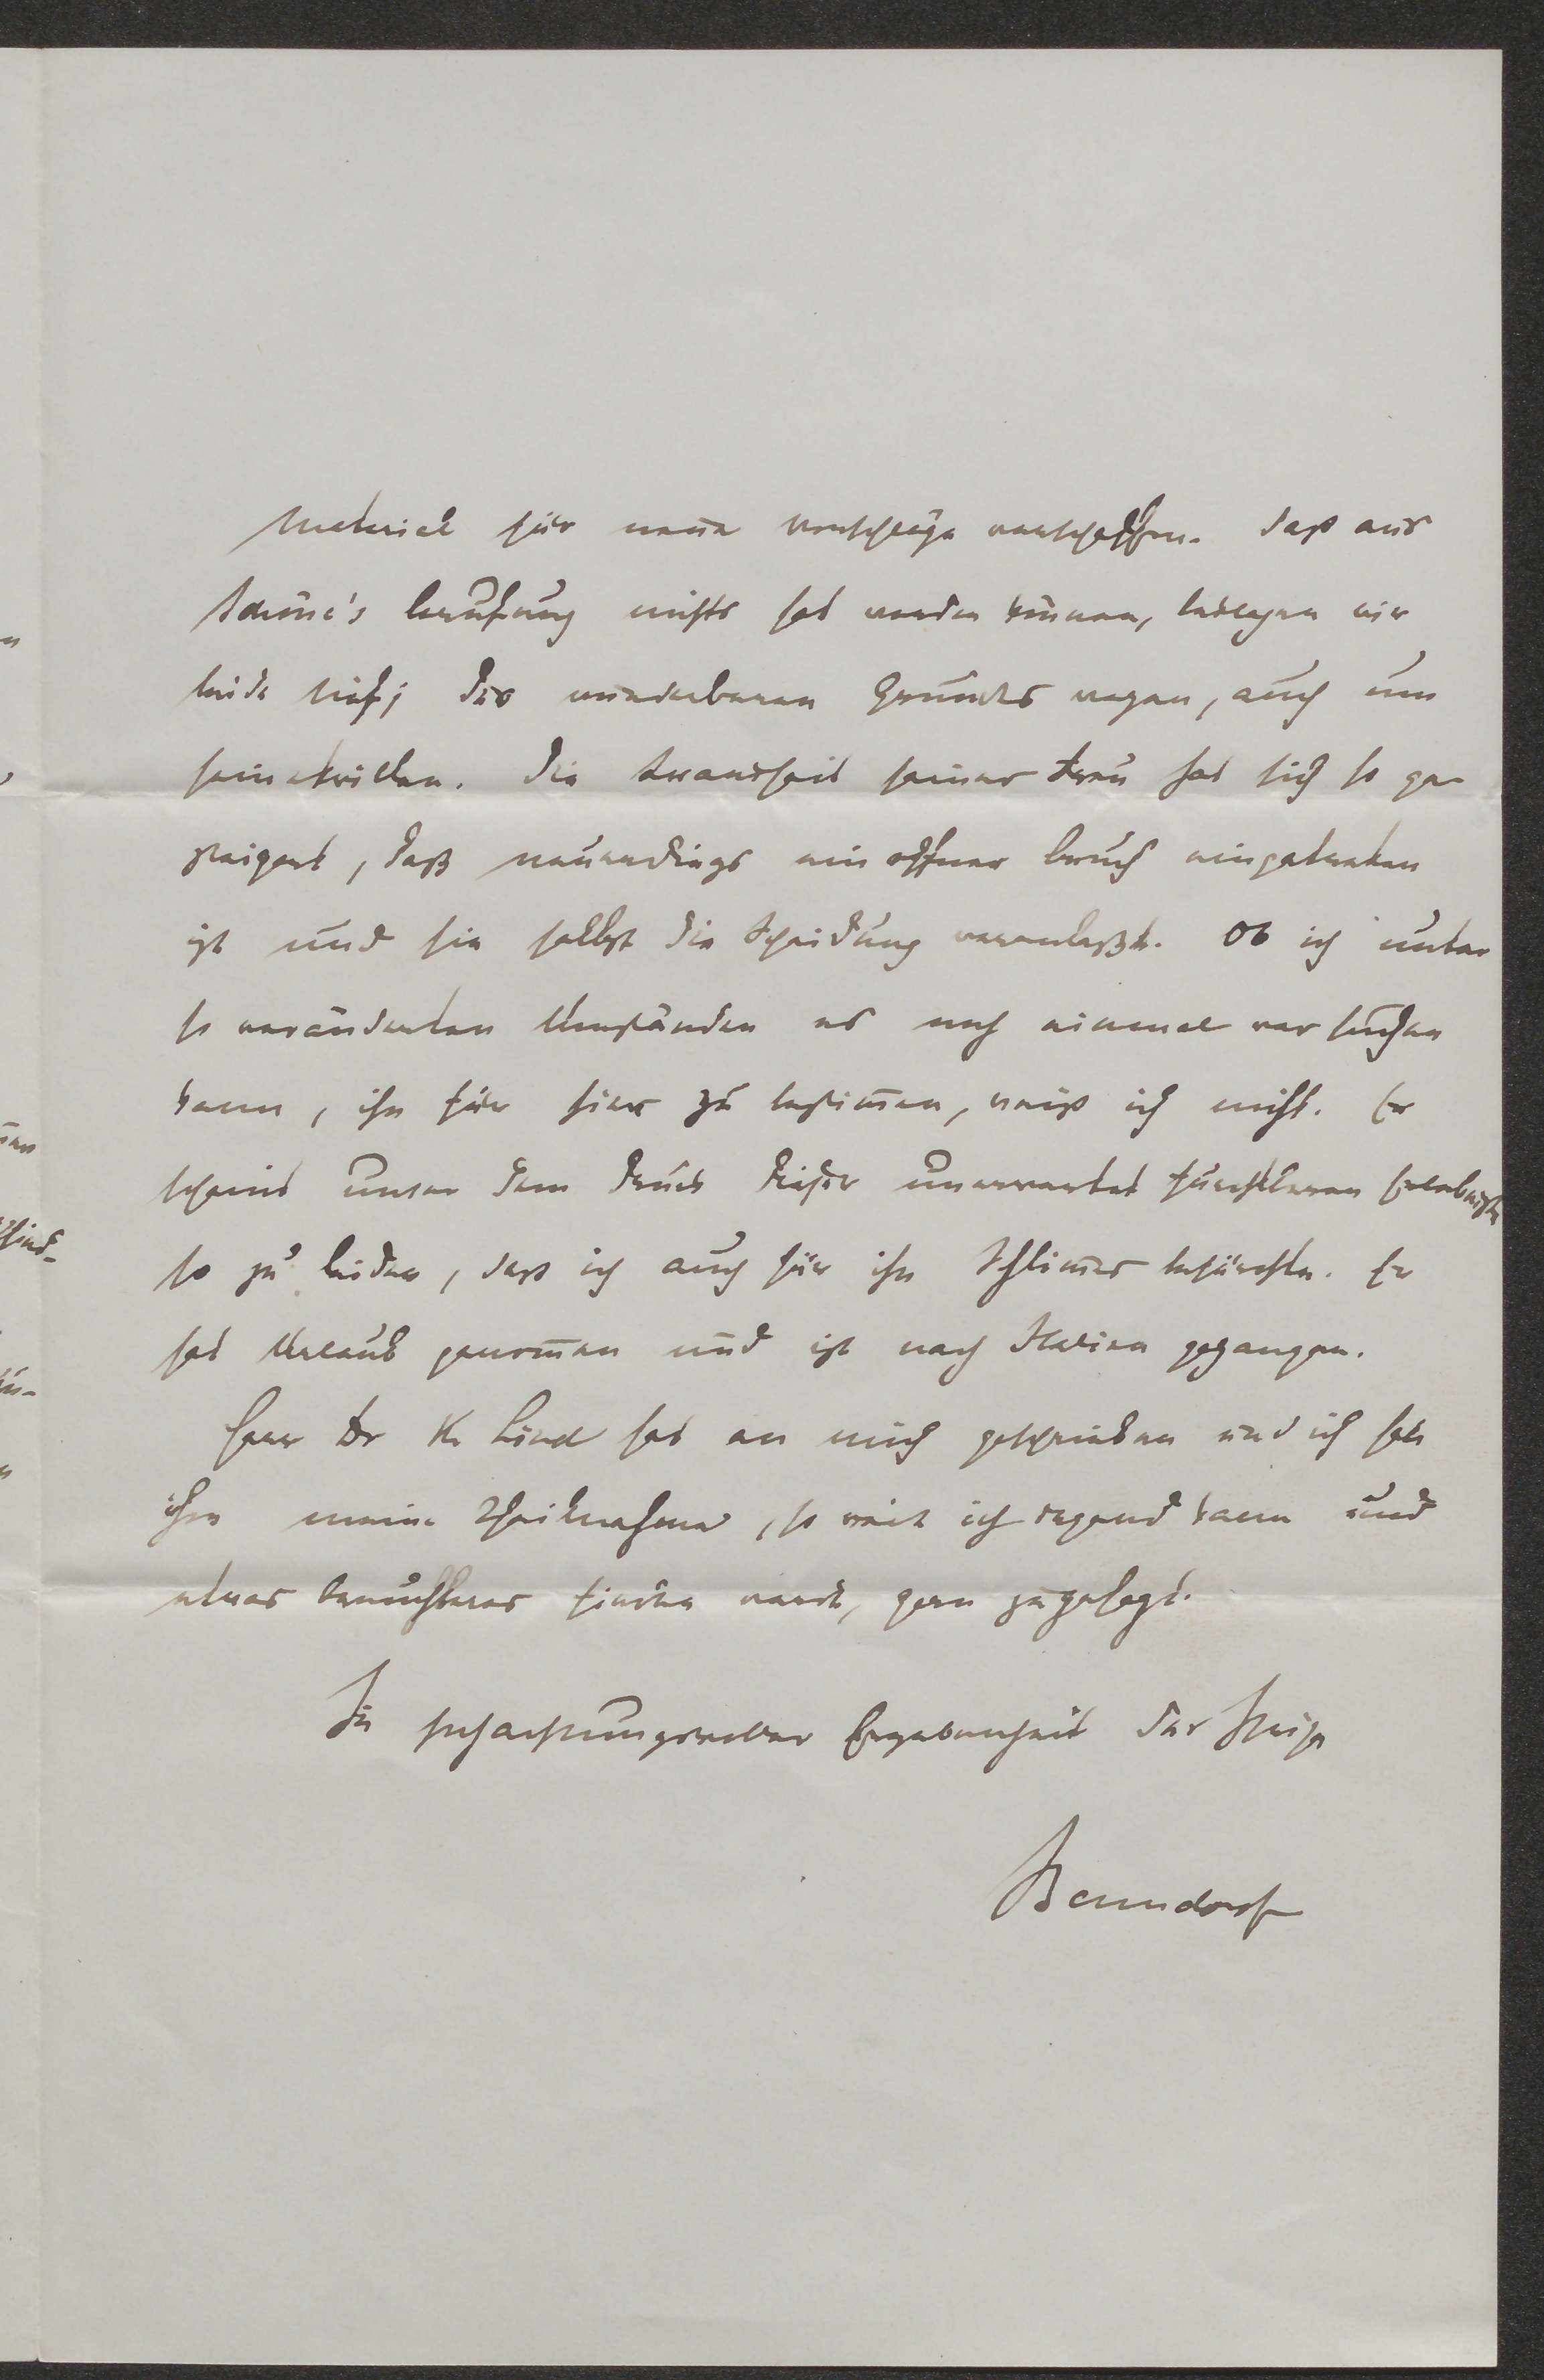 material für neue vorschläge verschaffen. Daß aus
Adüne's berufung nichts hat werden können, beklagen wir
beide tief; des wunderbaren Grundes wegen, auch um
seinetwillen. Die krankheit seiner frau hat sich so ge-
steigert, daß neuerdings ein offner bruch eingetreten
ist und sie selbst die scheidung veranlaßt. Ob ich unter
so veränderten Umständen es noch einmal versuchen
kann, ihn für hier zu bestimen, weiß ich nicht. Er
scheint unter dem druck dieser unerwartet furchtbaren Erlebnisse
so zu leiden, daß ich auch für ihn Schlimes befürchte. Er
hat Urlaub genomen und ist nach Italien gegangen.
Herr Dr K. Lind hat an mich geschrieben und ich habe
ihm meine Theilnahme, so weit ich irgend kann und
etwas brauchbares finden werde, gern zugesagt.
In hochachtungsvoller Ergebenheit der Ihrige
Benndorf